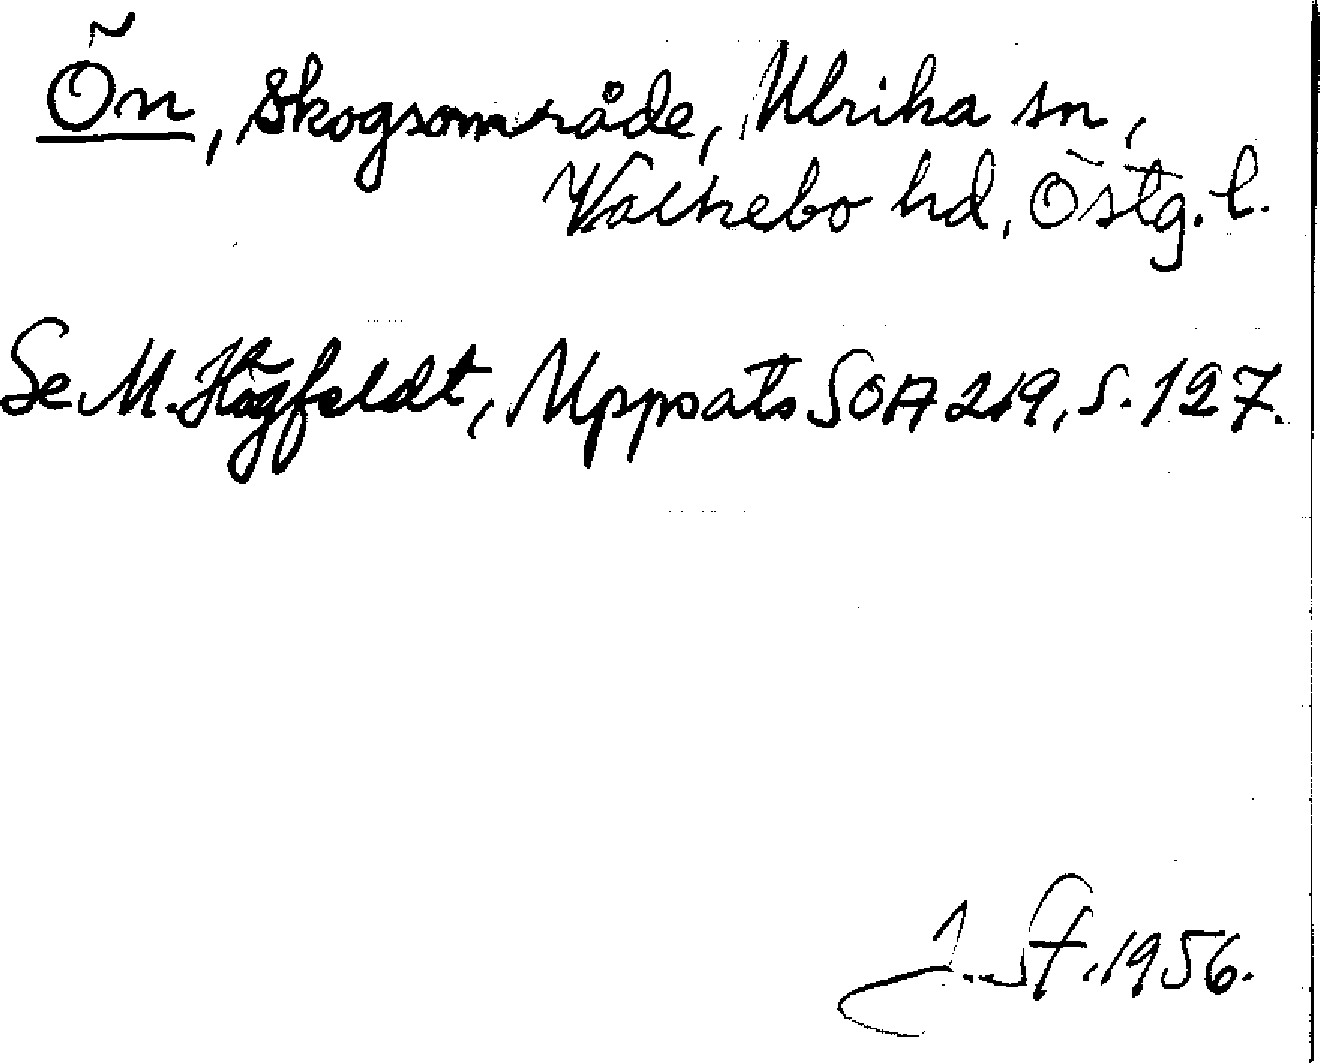 Ön, skogsområde, Ulrika sn,
Valkebo hd, Östg. l.
Se M. Högfeldt, Uppsats SOA 219, S. 127.
J. St. 1956.